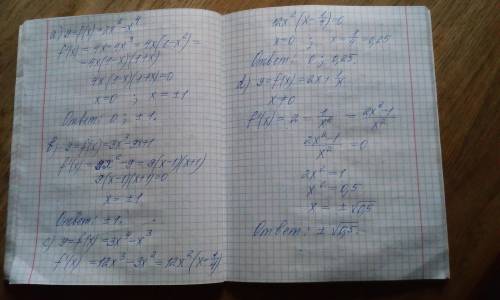 a) y=f(x)=2x²-x⁴
f'(x)=4x-4x³=4x(1-x²)=
=4x(1-x)(1+x)
4x(1-x)(1+x)=0
x=0 ; x=±1
Ответ: 0; ±1.
b) y=f(x)=3x³-9x+1
f'(x)=9x²-9=9(x-1)(x+1)
9(x-1)(x+1)=0
x=±1
Ответ: ±1.
c) y=f(x)=3x⁴-x³
f'(x)=12x³-3x²=12x²(x-1/4)
12x²(x-1/4)=0
x=0 ; x=1/4=0,25
Ответ: 0; 0,25.
d) y=f(x)=2x+1/x
x≠0
f'(x)=2-1/x²=2x²-1/x²
2x²-1/x²=0
2x²=1
x²=0,5
x=±√0,5
Ответ: ±√0,5.